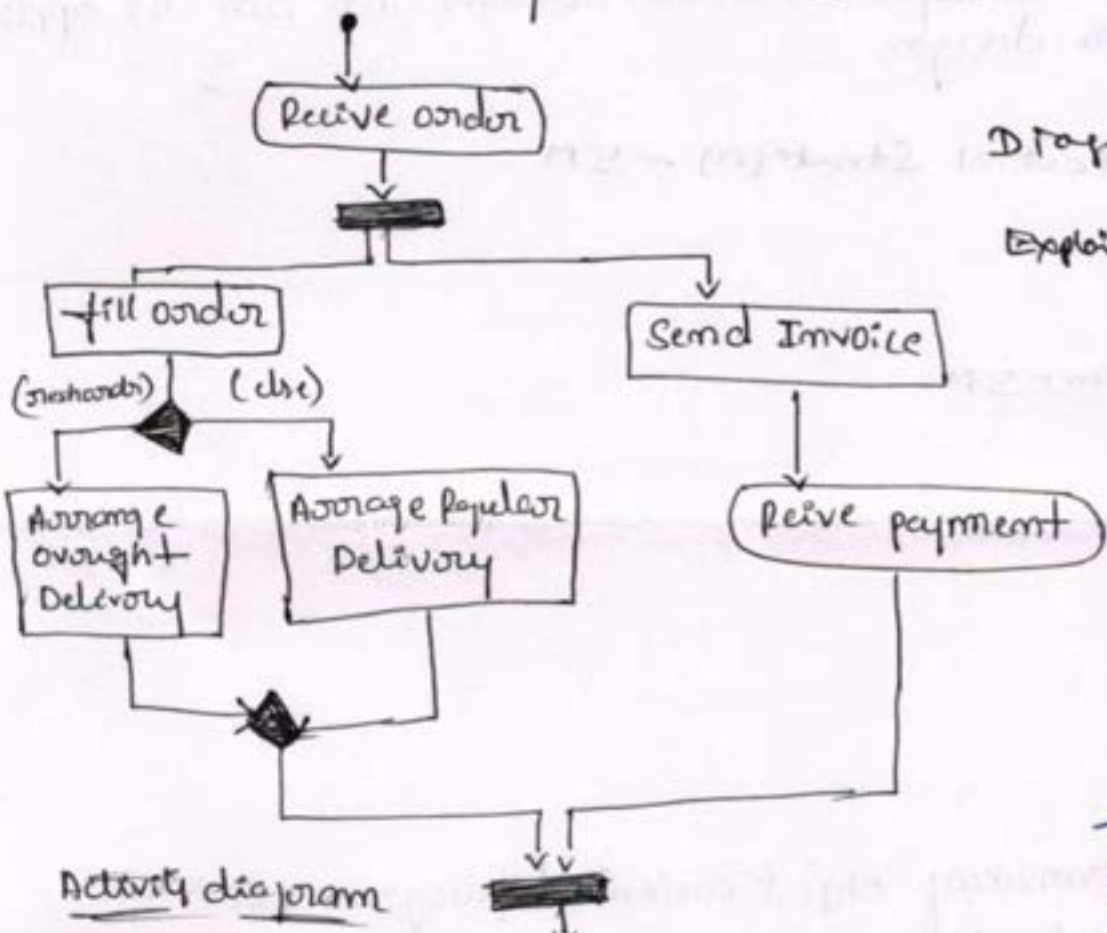 Recive order
Diag
Explai
fill order
Send Invoice
(else)
Arrange
ovought
Delivory
Arrage Regular
Delivory
Reive payment
Activity diagram